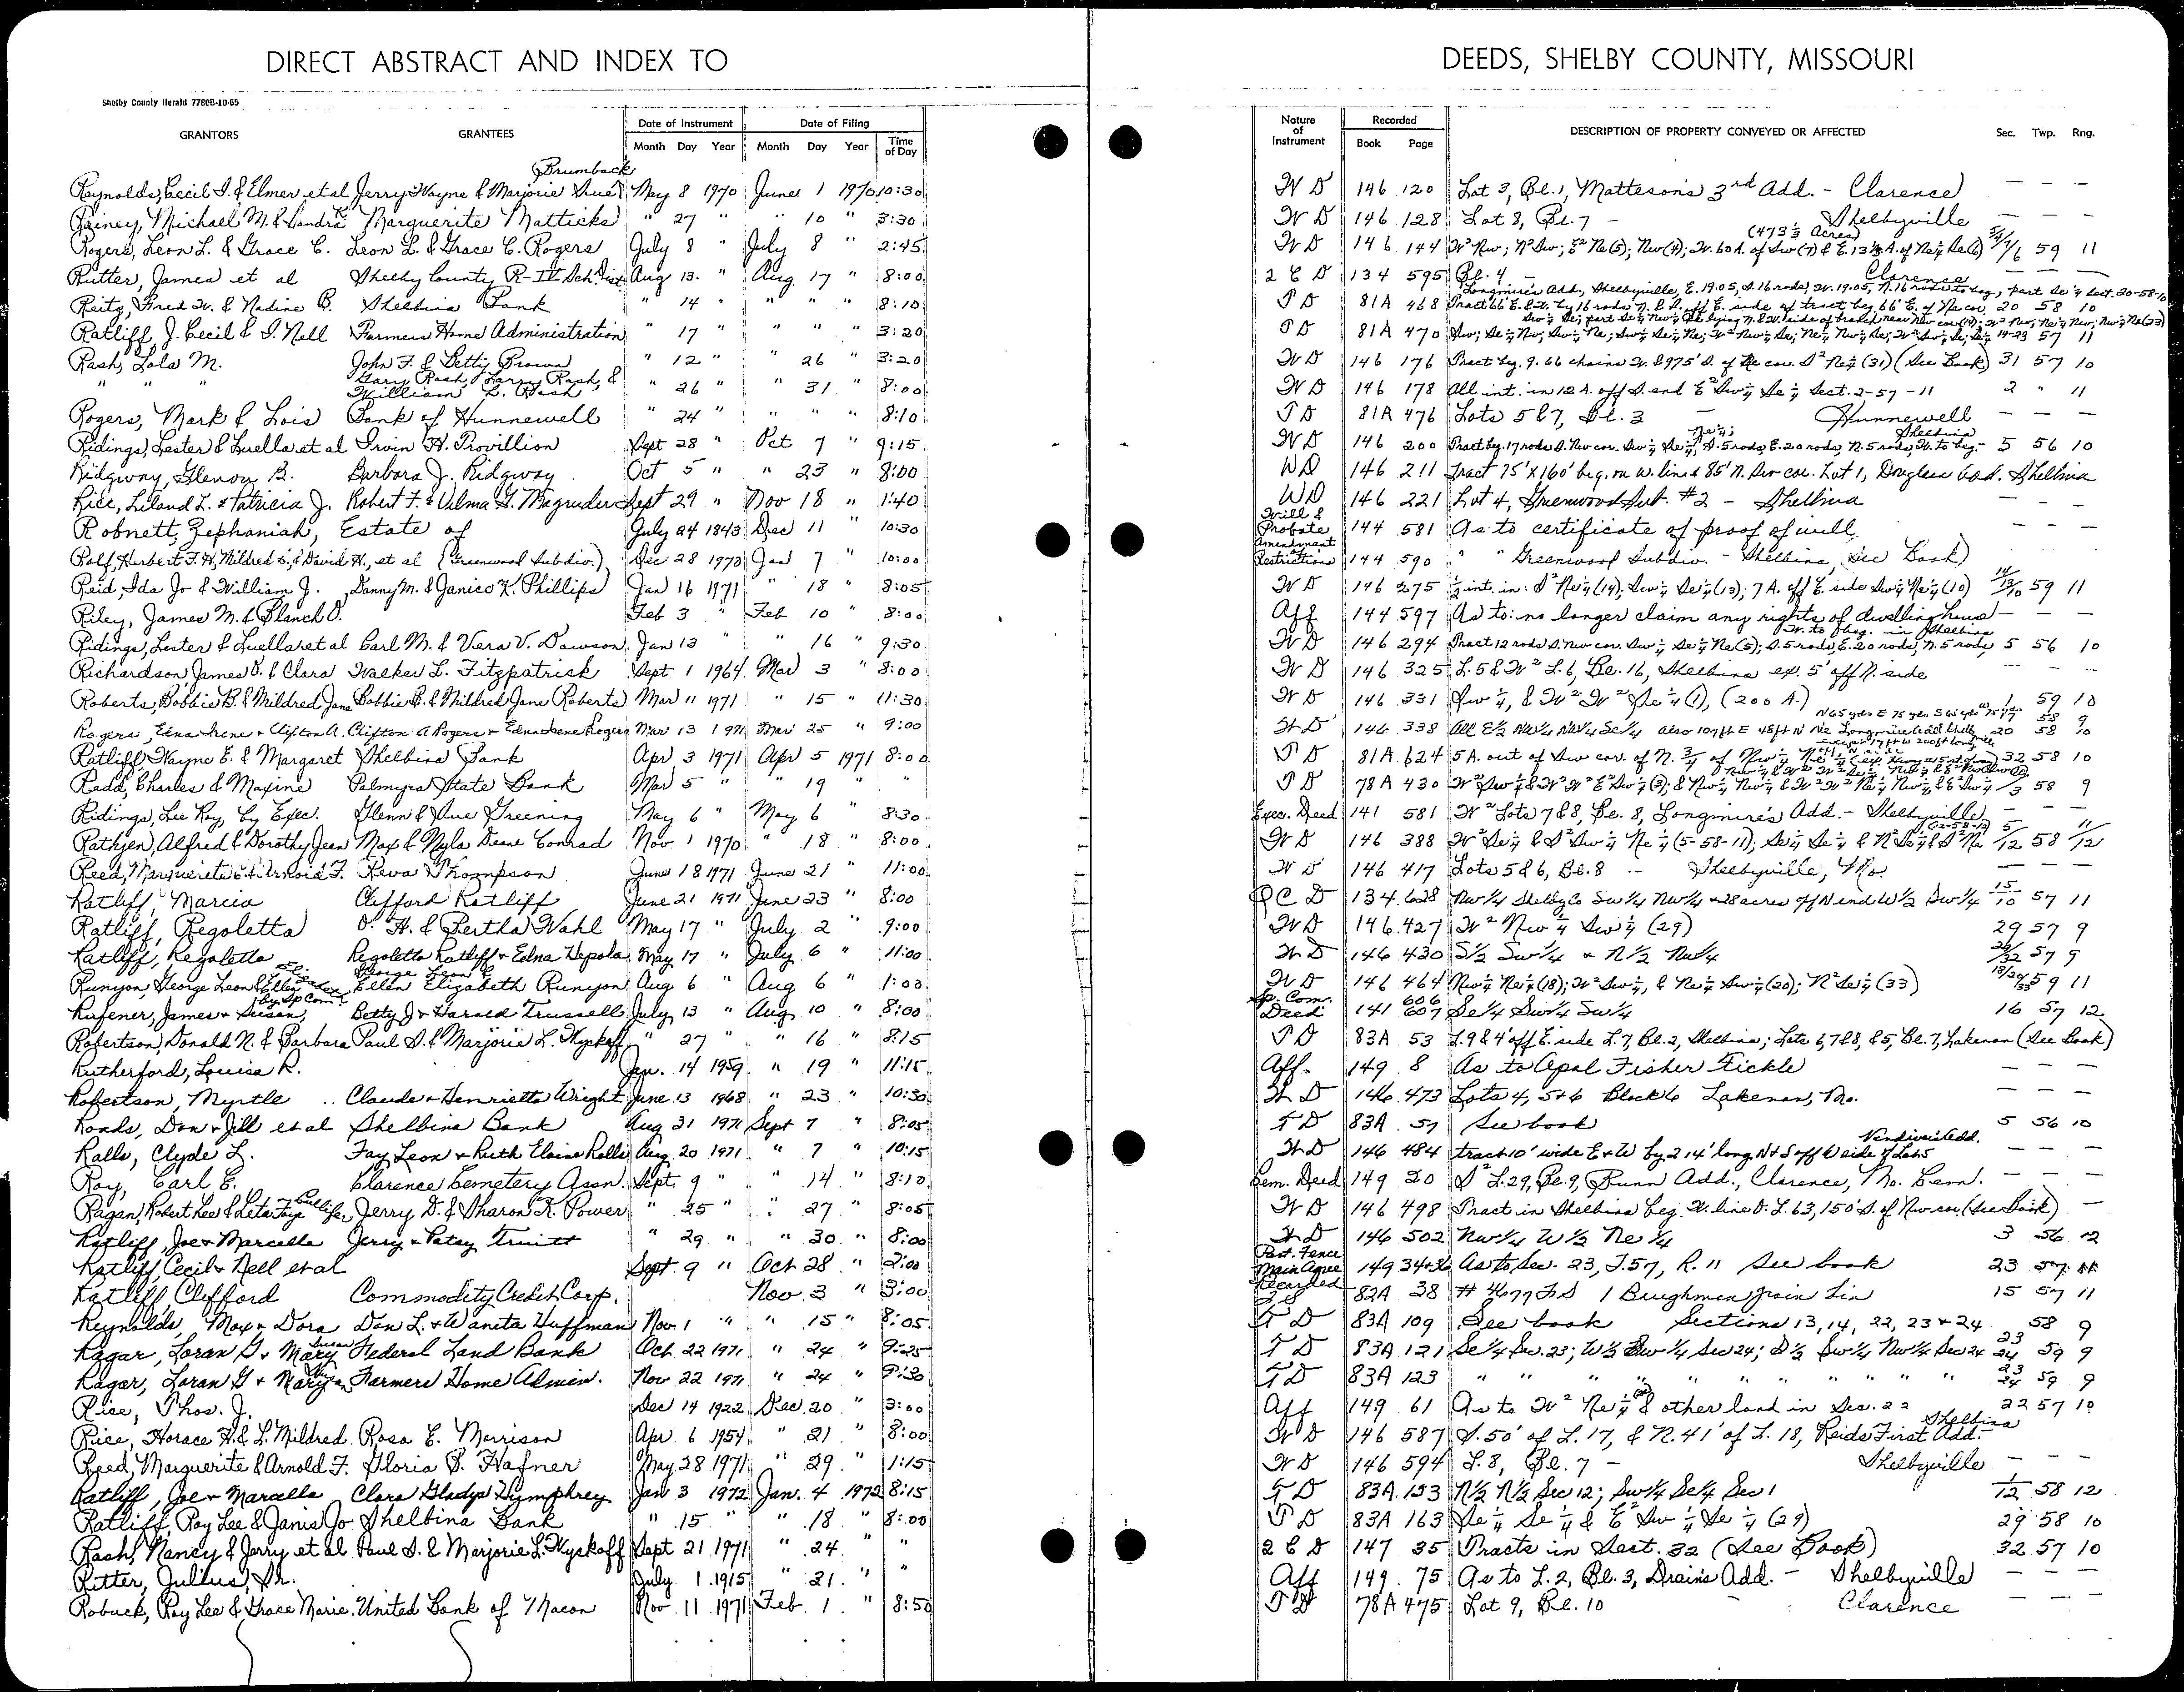 DIRECT ABSTRACT AND INDEX TO DEEDS, SHELBY COUNTY, MISSOURI
Shelby County Herald 7780B-10-65
GRANTORS GRANTEES Date of Instrument Month Day Year Date of Filing Month Day Year Time of Day Nature of Instrument Recorded Book Page DESCRIPTION OF PROPERTY CONVEYED OR AFFECTED Sec. Twp. Rng.
Brumback
Raynolds, Cecil I. & Elmer et al Jerry Wayne & Marjorie Sue May 8 1970 June 1 1970 10:30 W D 146 120 Lot 3, Bl. 1, Matteson's 3rd Add. - Clarence — — —
Rainey, Michael M. & Sandra K. Marguerite Matticks " 27 " " 10 " 3:30 W D 146 128 Lot 8, Bl. 7 - Shelbyville — — —
Rogers, Leon L. & Grace C. Leon L. & Grace C. Rogers July 8 " July 8 " 2:45 W D 146 144 (473⅓ Acres) 59 11
Rutter, James et al Shelby County R-IV Sch. Dist. Aug 13 " Aug 17 " 8:00 2 C D 134 595 Bl. 4 - Clarence — — —
Reitz, Fred W. & Nadine B. Shelbina Bank " 14 " " " " 8:10 T D 81A 468 20 58 10
Ratliff, J. Cecil & I. Nell Farmers Home Administration " 17 " " " " 3:20 T D 81A 470 14-23 57 11
Rash, Lola M. John F. & Betty Brown " 12 " " 26 " 3:20 W D 146 176 Tract beg. 9.66 chains W. & 975' S. of Ne cor. S² Ne¼ (31) (See Book) 31 57 10
" " " Gary Rash, Larry Rash, & William L. Rash " 26 " " 31 " 8:00 W D 146 178 All int. in 12 A. off S. end E² Sw¼ Se¼ Sect. 2-57-11 2 " 11
Rogers, Mark & Lois Bank of Hunnewell " 24 " " " " 8:10 T D 81A 476 Lots 5 & 7, Bl. 3 - Hunnewell — — —
Ridings, Lester & Luella et al Irvin H. Provillion Sept 28 " Oct 7 " 9:15 W D 146 200 Tract beg. 17 rods S. Nw cor. Sw¼ Se¼ Ne¼; S. 5 rods, E. 20 rods, N. 5 rods, W. to beg. - Shelbina 5 56 10
Ridgway, Glenon B. Barbara J. Ridgway Oct 5 " " 23 " 8:00 WD 146 211 Tract 75' x 160' beg. on w. line & 85' N. Sw cor. Lot 1, Douglass Add. Shelbina
Rice, Leland L. & Patricia J. Robert F. & Velma G. Magruder Sept 29 " Nov 18 " 1:40 WD 146 221 Lot 4, Greenwood Sub. #2 - Shelbina — —
Robnett, Zephaniah, Estate of July 24 1843 Dec 11 " 10:30 Will & Probate 144 581 As to certificate of proof of will — — —
Rolf, Herbert F. H., Mildred S., & David H., et al (Greenwood Subdiv.) Dec 28 1970 Jan 7 " 10:00 Amendment of Restrictions 144 590 " " Greenwood Subdiv. - Shelbina, See Book)
Reid, Ida Jo & William J. Danny M. & Janice K. Phillips Jan 16 1971 " 18 " 8:05 W D 146 275 ½ int. in: S² Ne¼ (14); Sw¼ Se¼ (13); 7 A. off E. side Sw¼ Ne¼ (10) 14/13/10 59 11
Riley, James M. & Blanch O. Feb 3 " Feb 10 " 8:00 Aff 144 597 As to: no longer claim any rights of dwelling house — — —
Ridings, Lester & Luella et al Carl M. & Vera V. Dawson Jan 13 " " 16 " 9:30 W D 146 294 Tract 12 rods S. Nw cor. Sw¼ Se¼ Ne (5); S. 5 rods, E. 20 rods, N. 5 rods, W. to beg. in Shelbina 5 56 10
Richardson, James O. & Clara Walker L. Fitzpatrick Sept 1 1964 Mar 3 " 8:00 W D 146 325 L. 5 & W² L. 6, Bl. 16, Shelbina ex. 5' off N. side — — —
Roberts, Bobbie B. & Mildred Jane Bobbie B. & Mildred Jane Roberts Mar 11 1971 " 15 " 11:30 W D 146 331 Sw¼, & W² W² Se¼ (1), (200 A.) 1 59 10
Rogers, Edna Irene & Clifton A. Clifton A Rogers & Edna Irene Rogers Mar 13 1971 Mar 25 " 9:00 W D 146 338 All E½ Nw¼ Nw¼ Se¼ also 107 ft E 45 ft N
Ratliff, Wayne E. & Margaret Shelbina Bank Apr 3 1971 Apr 5 1971 8:00 T D 81A 624 5 A. out of Sw cor. of N. ¾ of Nw¼ Ne¼ 32 58 10
Redd, Charles & Maxine Palmyra State Bank Mar 5 " " 19 " " T D 78A 430 58 9
Ridings, Lee Roy, by Exec. Glenn & Sue Greening May 6 " May 6 " 8:30 Exec. Deed 141 581 W² Lots 7 & 8, Bl. 8, Longmire's Add. - Shelbyville — — —
Rathjen, Alfred & Dorothy Jean Max & Nyla Deane Conrad Nov 1 1970 " 18 " 8:00 W D 146 388 W² Se¼ & S² Sw¼ Ne¼ (5-58-11); Se¼ Se¼ & N² Se¼ & S² Ne (12-58-12) 5/12 58 11/12
Reed, Marguerite E. & Arnold F. Reva Thompson June 18 1971 June 21 " 11:00 W D 146 417 Lots 5 & 6, Bl. 8 - Shelbyville, Mo. — — —
Ratliff, Marcia Clifford Ratliff June 21 1971 June 23 " 8:00 Q C D 134 628 Nw¼ Sw¼ Nw¼ + 28 acres off N end W½ Sw¼ 15/10 57 11
Ratliff, Regoletta O. H. & Bertha Wahl May 17 " July 2 " 9:00 W D 146 427 W² Nw¼ Sw¼ (29) 29 57 9
Ratliff, Regoletta Regoletta Ratliff & Edna Hepola May 17 " July 6 " 11:00 W D 146 430 S½ Sw¼ & N½ Nw¼ 29/32 57 9
Runyon, George Leon & Ellen Elizabeth George Leon & Ellen Elizabeth Runyon Aug 6 " Aug 6 " 1:00 W D 146 464 Nw¼ Ne¼ (18); W² Sw¼, & Ne¼ Sw¼ (20); N² Se¼ (33) 18/20/33 59 11
Rufener, James & Susan, by Sp Com. Betty J & Harold Trussell July 13 " Aug 10 " 8:00 Sp. Com. Deed 141 606 607 Se¼ Sw¼ Sw¼ 16 57 12
Robertson, Donald N. & Barbara Paul S. & Marjorie L. Wyckoff " 27 " " 16 " 8:15 T D 83A 53 L. 9 & 4' off E. side L. 7, Bl. 2, Shelbina; Lots 6, 7 & 8, & 5, Bl. 7, Lakenan (See Book)
Rutherford, Louisa R. Jan. 14 1959 " 19 " 11:15 Aff. 149 8 As to Opal Fisher Tickle — — —
Robertson, Myrtle Claude & Henrietta Wright June 13 1968 " 23 " 10:30 W D 146 473 Lots 4, 5 & 6 Block 6 Lakenan, Mo. — — —
Roads, Don & Jill et al Shelbina Bank Aug 31 1971 Sept 7 " 8:05 T D 83A 57 See book 5 56 10
Ralls, Clyde L. Fay Leon & Ruth Elaine Ralls Aug. 20 1971 " 7 " 10:15 W D 146 484 tract 10' wide E & W by 214' long N & S off W side of Lot 5 — — —
Roy, Earl E. Clarence Cemetery Assn. Sept. 9 " " 14 " 8:10 Cem. Deed 149 20 S² L. 29, Bl. 9, Bunn Add., Clarence, Mo. Cem. — — —
Ragan, Robert Lee & Leta Faye Jerry D. & Sharon K. Power " 25 " " 27 " 8:05 W D 146 498 Tract in Shelbina beg. W. line O. L. 63, 150' S. of Nw cor. (See Book) —
Ratliff, Joe & Marcella Jerry & Patsy Truitt " 29 " " 30 " 8:00 W D 146 502 Nw¼ W½ Ne¼ 3 56 12
Ratliff, Cecil & Nell et al Sept. 9 " Oct 28 " 2:00 Part. Fence Main Agree 149 34 As to Sec. 23, T. 57, R. 11 See book 23 57 11
Ratliff, Clifford Commodity Credit Corp. Nov. 3 " 3:00 Recorded 83A 38 1 Baughman grain bin 15 57 11
Reynolds, Max & Dora Don L. & Waneta Huffman Nov 1 " " 15 " 8:05 T D 83A 109 See book Sections 13, 14, 22, 23 & 24 58 9
Ragar, Loran G & Mary Susan Federal Land Bank Oct. 22 1971 " 24 " 9:25 T D 83A 121 Se¼ Sec. 23; W½ Sw¼ Sec 24; S½ Sw¼ Nw¼ Sec 24 23 24 59 9
Ragar, Loran G & Mary Susan Farmers Home Admin. Nov 22 1971 " 24 " 9:30 T D 83A 123 " " " " " " " " " 23 24 59 9
Rice, Thos. J. Dec 14 1922 Dec. 20 " 3:00 Aff 149 61 As to W² Ne¼ & other land in Sec. 22 22 57 10
Rice, Horace H. & L. Mildred Rosa E. Morrison Apr. 6 1954 " 21 " 8:00 W D 146 587 S. 50' of L. 17, & N. 41' of L. 18, Reids First Add. - Shelbina
Reed, Marguerite & Arnold F. Gloria B. Hafner May 28 1971 " 29 " 1:15 W D 146 594 L. 8, Bl. 7 - Shelbyville — —
Ratliff, Joe & Marcella Clara Gladys Humphrey Jan 3 1972 Jan. 4 1972 8:15 T D 83A 153 N½ N½ Sec 12; Sw¼ Se¼ Sec 1 1/12 58 12
Ratliff, Roy Lee & Janis Jo Shelbina Bank " 15 " " 18 " 8:00 T D 83A 163 Se¼ Se¼ & E² Sw¼ Se¼ (29) 29 58 10
Rash, Nancy & Jerry et al Paul S. & Marjorie L. Wyckoff Sept 21 1971 " 24 " " 2 C D 147 35 Tracts in Sect. 32 (See Book) 32 57 10
Ritter, Julius, Sr. July 1 1915 " 31 " " Aff 149 75 As to L. 2, Bl. 3, Drain's Add. - Shelbyville — — —
Robuck, Roy Lee & Grace Marie United Bank of Macon Nov. 11 1971 Feb. 1 " 8:50 T D 78A 475 Lot 9, Bl. 10 - Clarence — —